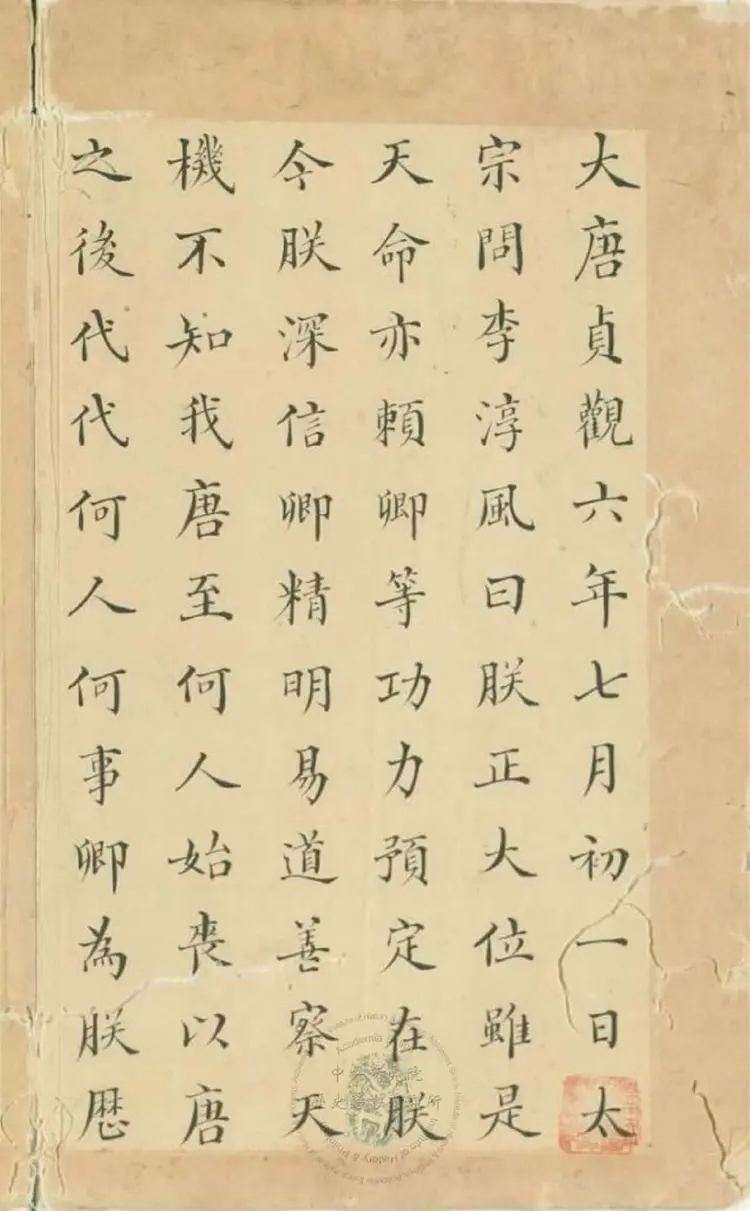 大唐貞觀六年七月初一日太
宗問李淳風曰朕正大位雖是
天命亦賴卿等功力預定在朕
今朕深信卿精明易道善察天
機不知我唐至何人始喪以唐
之後代代何人何事卿為朕歴